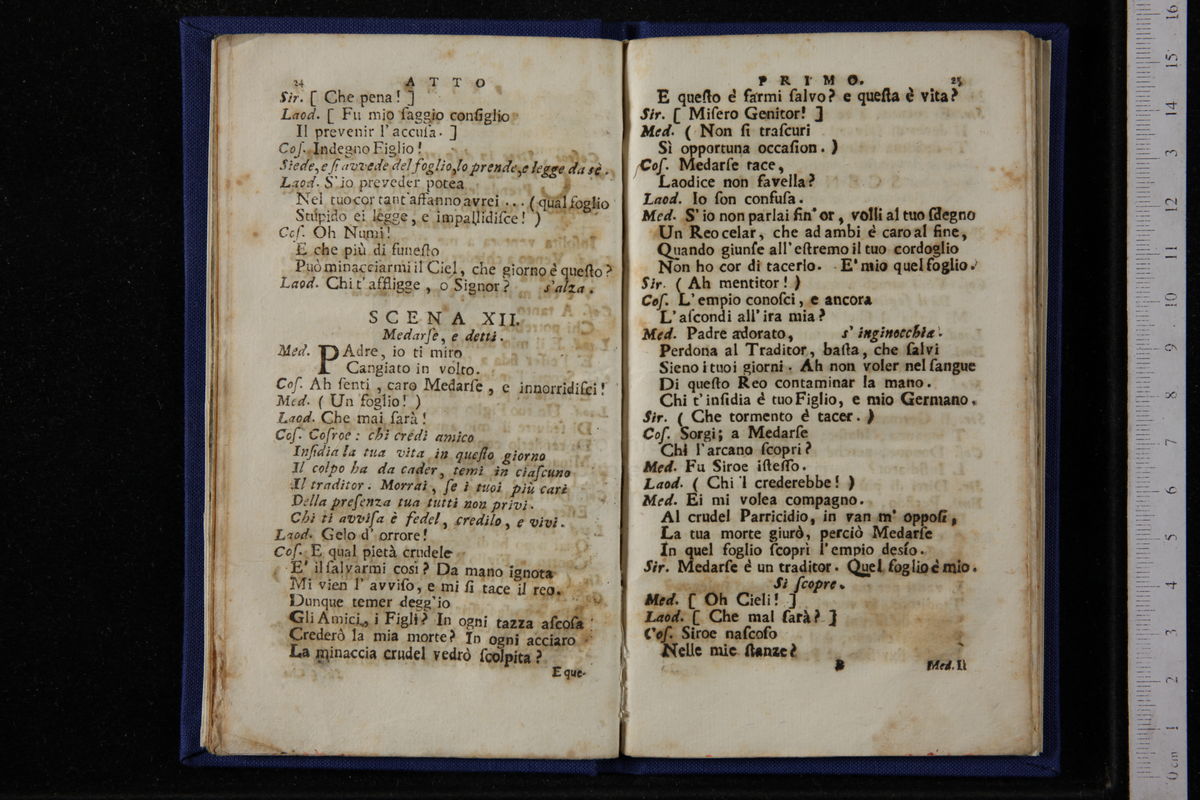 24 ATTO
Sir. [ Che pena! ]
Laod. [ Fu mio ſaggio conſiglio
Il prevenir l'accuſa. ]
Coſ. Indegno Figlio!
Siede, e ſi avvede del foglio, lo prende, e legge da sè.
Laod. S'io preveder potea
Nel tuo cor tant' affanno avrei ... ( qual foglio
Stupido ei legge, e impallidiſce! )
Coſ. Oh Numi!
E che più di funeſto
Può minacciarmi il Ciel, che giorno è queſto?
Laod. Chi t' affligge, o Signor? s'alza.
SCENA XII.
Medarſe, e detti.
Med. PAdre, io ti miro
Cangiato in volto.
Coſ. Ah ſenti, caro Medarſe, e innorridiſci!
Med. ( Un foglio! )
Laod. Che mai ſarà!
Coſ. Coſroe: chi credi amico
Inſidia la tua vita in queſto giorno
Il colpo ha da cader, temi in ciaſcuno
Il traditor. Morrai, ſe i tuoi più cari
Della preſenza tua tutti non privi.
Chi ti avviſa è fedel, credilo, e vivi.
Laod. Gelo d' orrore!
Coſ. E qual pietà crudele
E' il ſalvarmi così? Da mano ignota
Mi vien l' avviſo, e mi ſi tace il reo.
Dunque temer degg'io
Gli Amici, i Figli? In ogni tazza aſcoſa
Crederò la mia morte? In ogni acciaro
La minaccia crudel vedrò ſcolpita?
E que-
PRIMO. 25
E queſto è farmi ſalvo? e queſta è vita?
Sir. [ Miſero Genitor! ]
Med. ( Non ſi traſcuri
Sì opportuna occaſion. )
Coſ. Medarſe tace,
Laodice non favella?
Laod. Io ſon confuſa.
Med. S' io non parlai ſin' or, volli al tuo ſdegno
Un Reo celar, che ad ambi è caro al fine,
Quando giunſe all' eſtremo il tuo cordoglio
Non ho cor di tacerlo. E' mio quel foglio.
Sir. ( Ah mentitor! )
Coſ. L' empio conoſci, e ancora
L' aſcondi all' ira mia?
Med. Padre adorato, s' inginocchia.
Perdona al Traditor, baſta, che ſalvi
Sieno i tuoi giorni. Ah non voler nel ſangue
Di queſto Reo contaminar la mano.
Chi t' inſidia è tuo Figlio, e mio Germano.
Sir. ( Che tormento è tacer. )
Coſ. Sorgi; a Medarſe
Chi l' arcano ſcoprì?
Med. Fu Siroe iſteſſo.
Laod. ( Chi 'l crederebbe! )
Med. Ei mi volea compagno.
Al crudel Parricidio, in van m' oppoſi,
La tua morte giurò, perciò Medarſe
In quel foglio ſcoprì l' empio desìo.
Sir. Medarſe è un traditor. Quel foglio è mio.
Si ſcopre.
Med. [ Oh Cieli! ]
Laod. [ Che mal ſarà? ]
Coſ. Siroe naſcoſo
Nelle mie ſtanze?
B Med. Il